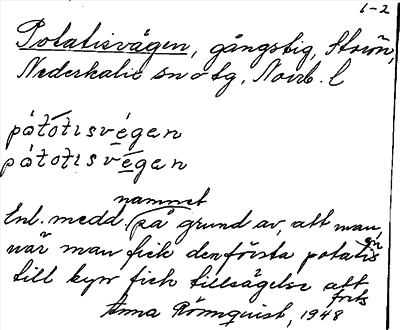 1-2
Potatisvägen, gångstig, Storön,
Nederkalix sn o tg, Norrb. l
pótȯtısvégen
pótȯtısvégen
namnet
Enl. medd. på grund av, att man,
när man fick den första potatisen
till byn fick tillsägelse att
forts
Anna Rönnquist, 1948